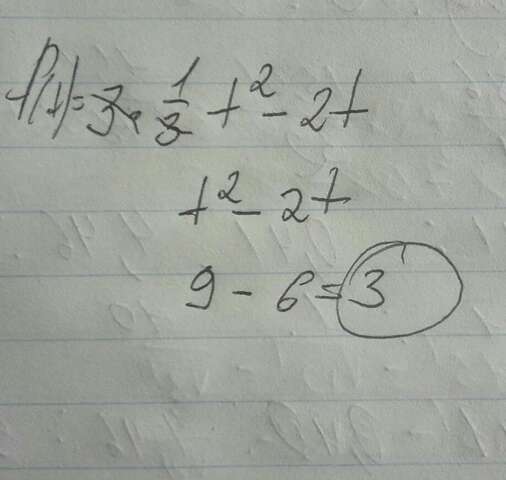 f'(t)=3·1/3 t²-2t
t²-2t
9-6=3